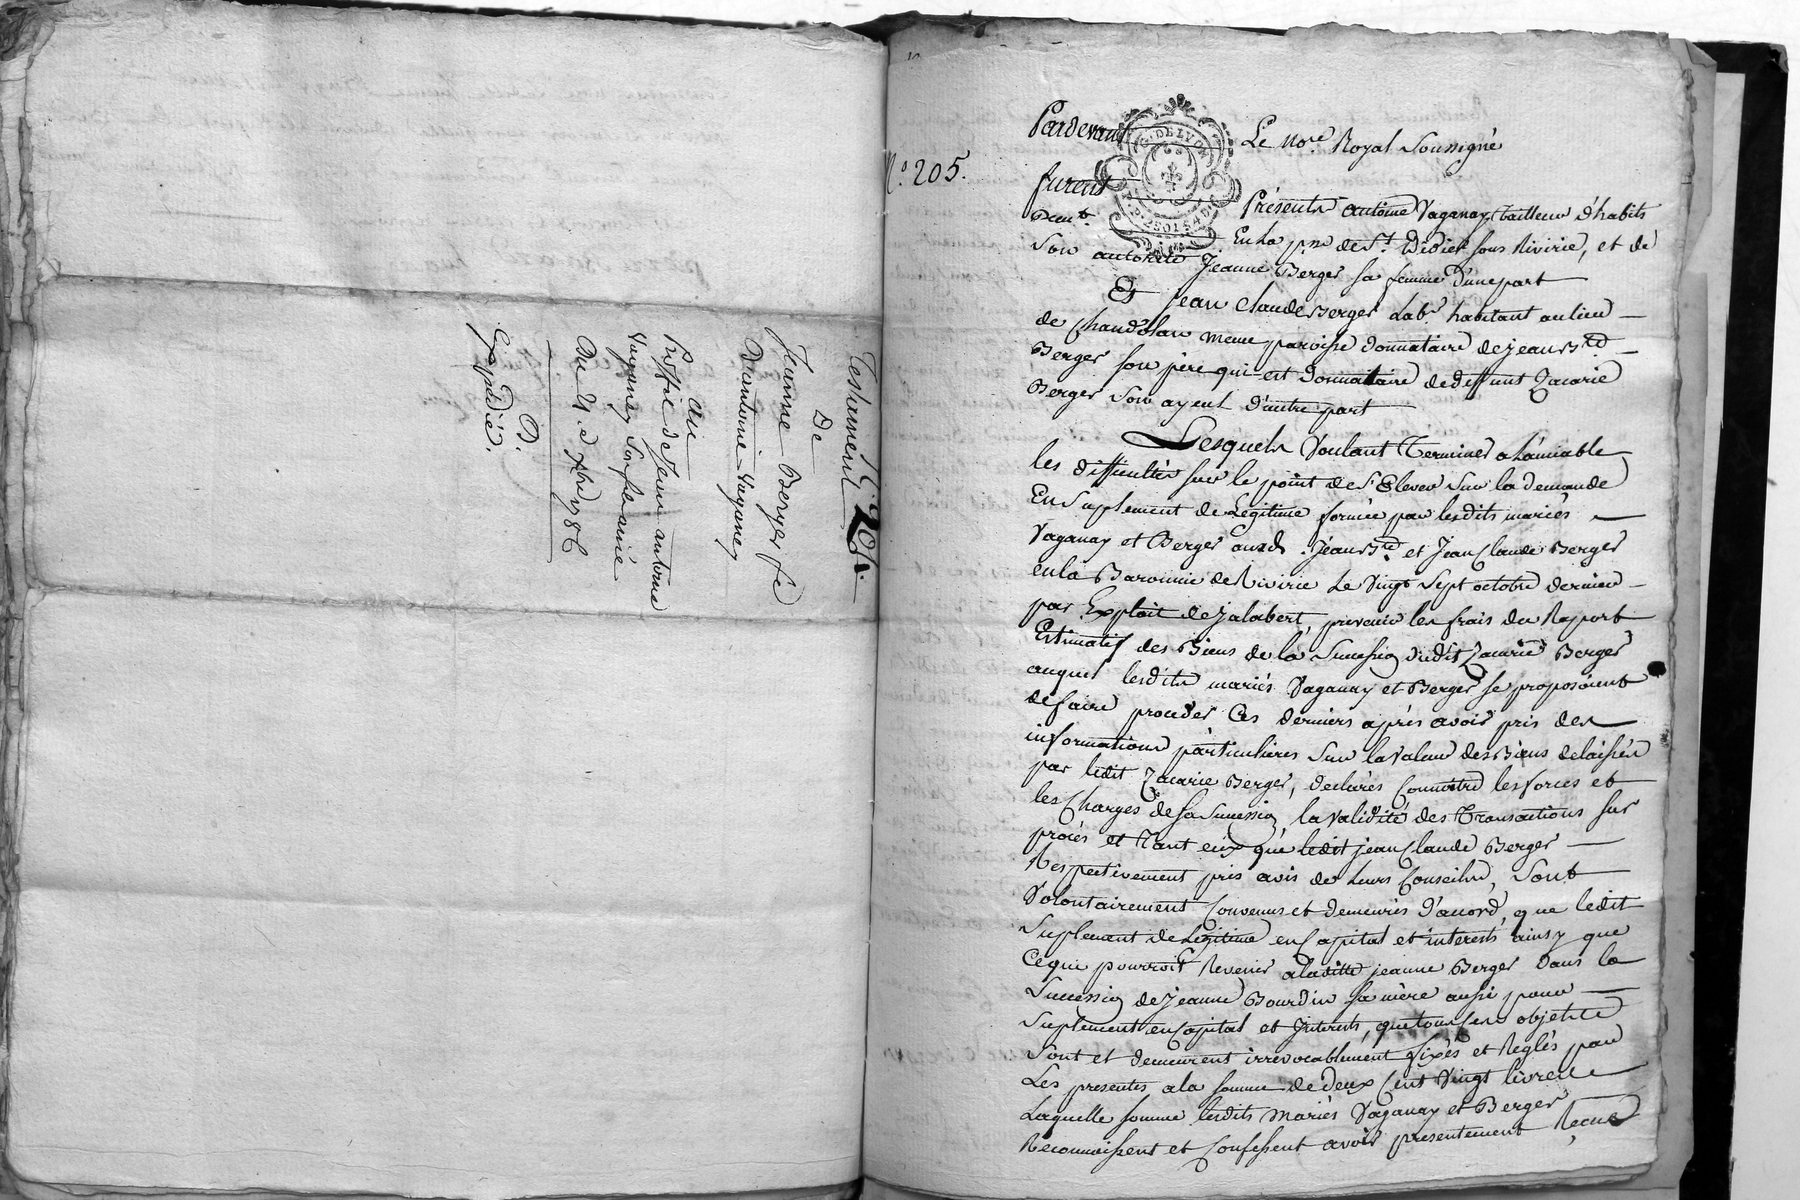 Testament
N.° 204.
De
Jeanne Berger fe
D'antoine Vaganey
au
Profit de Jean antoine
Vaganey son fils ainé
Du 21.e Xbre 1786
D.
Expediée.
N.° 205.
Pardevant Le No.re Royal Soussigné
furent Présents antoine Vaganay tailleur d'habits
Demt. En la psse de St. Didier sous Riverie, et de
son autorité Jeanne Berger sa femme d'une part
Et jean Claude Berger Labr. habitant au lieu
de Chandolan meme paroisse donnataire de jean Bd.
Berger son père qui est donnataire de deffunt Zacarie
Berger son ayeul d'autre part
Lesquels Voulant Terminer a L'amiable
les difficultés sur le point de S'Elever sur la demande
En Suplement de Legitime formée par lesdits mariés
Vaganay et Berger auxds. Jean Bd. et Jean Claude Berger
en la Baronnie de Riverie Le Vingt Sept octobre dernier
par Exploit de jalabert, prevenir les frais du Raport
Estimatif des Biens de la Succession dudit Zacarie Berger
auquel lesdits mariés Vaganay et Berger se proposoient
de faire proceder Ces derniers après avoir pris des
informations particulières Sur la Valeur des Biens delaissés
par ledit Zacarie Berger, declarés Connoitre les forces et
les Charges de sa Succession la Validité des Transactions sur
procès et Tant eux que ledit jean Claude Berger
Respectivement pris avis de Leurs Conseils, Sont
Volontairement Convenus et demeurés d'acord, que ledit
Suplement de Legitime en Capital et interests ainsy que
Ce qui pourroit Revenir a laditte jeanne Berger Dans la
Succession de jeanne Bourdin sa mère aussi pour
Suplement en Capital et Interests, que tous ces objets
Sont et demeurent irrevocablement fixés et Reglés par
Les presentes a la somme de deux Cent Vingt livres
Laquelle somme lesdits Mariés Vaganay et Berger
Reconnoissent et Confessent avoir presentement Recue